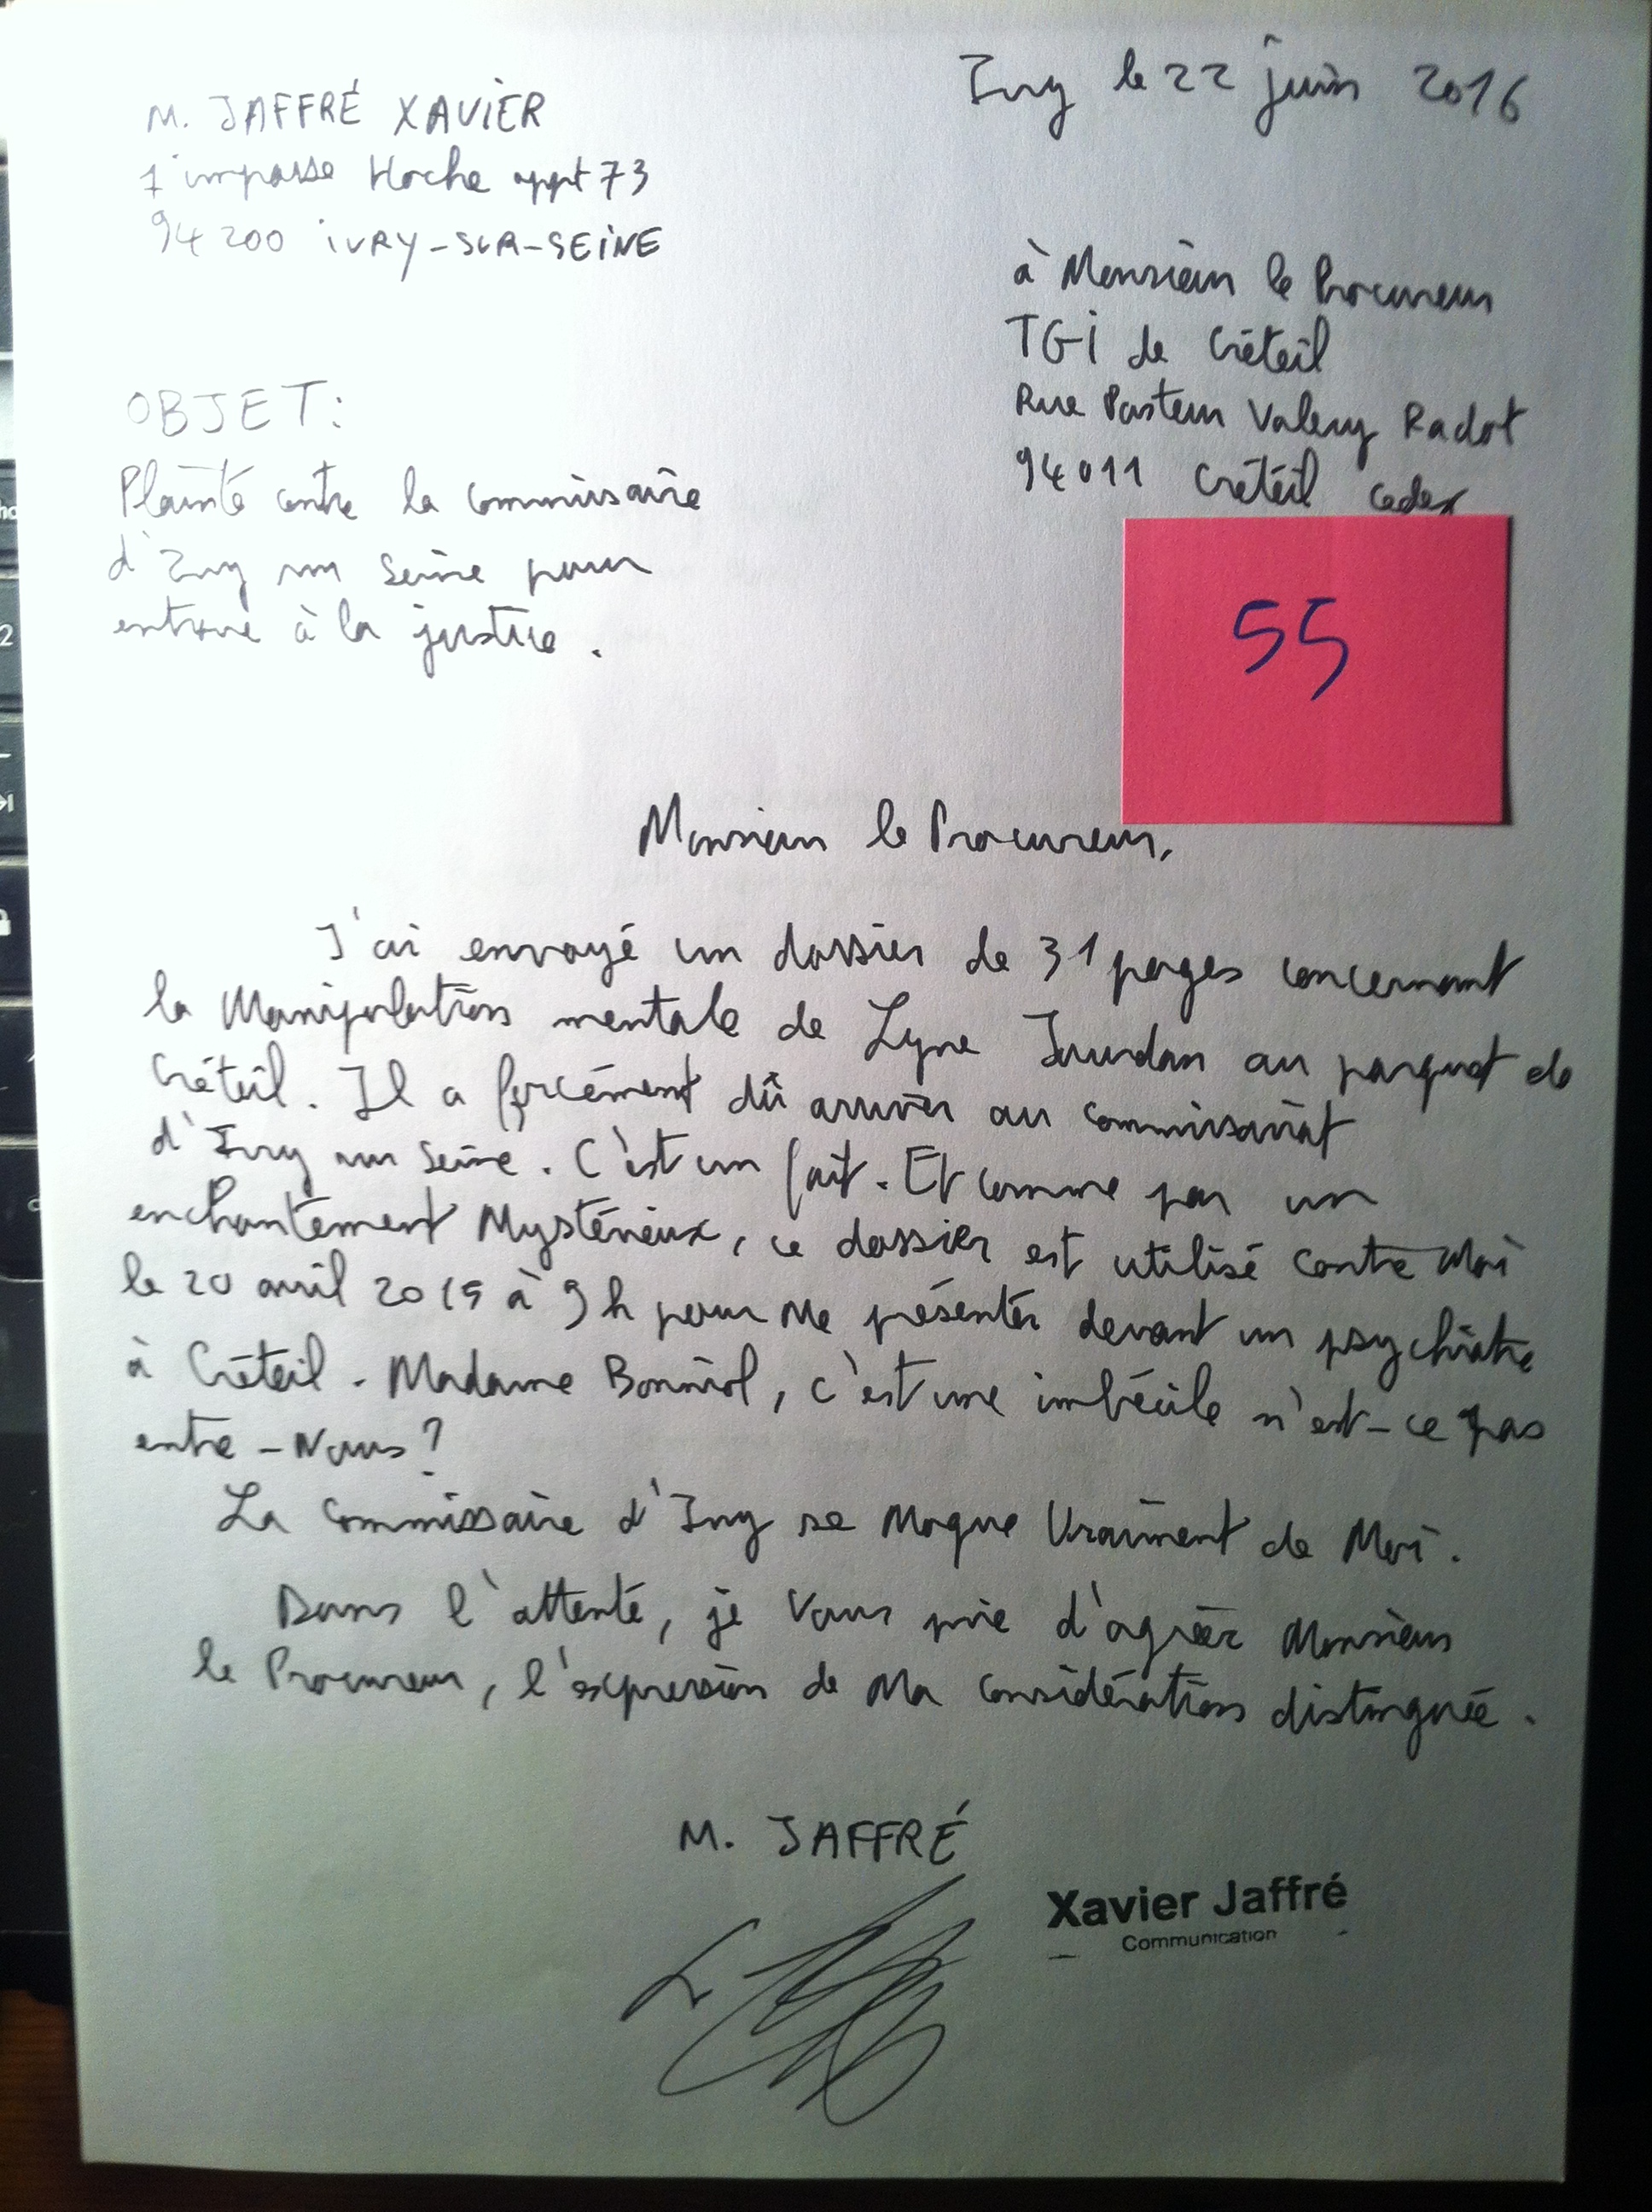 M. JAFFRÉ XAVIER
1 impasse Hoche appt 73
94200 IVRY-SUR-SEINE
Ivry le 22 juin 2016
à Monsieur le Procureur
TGI de Créteil
Rue Pasteur Valery Radot
94011 Créteil cedex
OBJET:
Plainte contre la commissaire
d'Ivry sur Seine pour
entrave à la justice.
55
Monsieur le Procureur,
J'ai envoyé un dossier de 31 pages concernant
la Manipulation mentale de Lyne Jourdan au parquet de
Créteil. Il a forcément dû arriver au commissariat
d'Ivry sur Seine. C'est un fait. Et comme par un
enchantement Mystérieux, ce dossier est utilisé contre Moi
le 20 avril 2015 à 9h pour Me présenter devant un psychiatre
à Créteil. Madame Bonniol, c'est une imbécile n'est-ce pas
entre-Nous?
La Commissaire d'Ivry se Moque Vraiment de Moi.
Dans l'attente, je Vous prie d'agréer Monsieur
le Procureur, l'expression de Ma considération distinguée.
M. JAFFRÉ
Xavier Jaffré
Communication